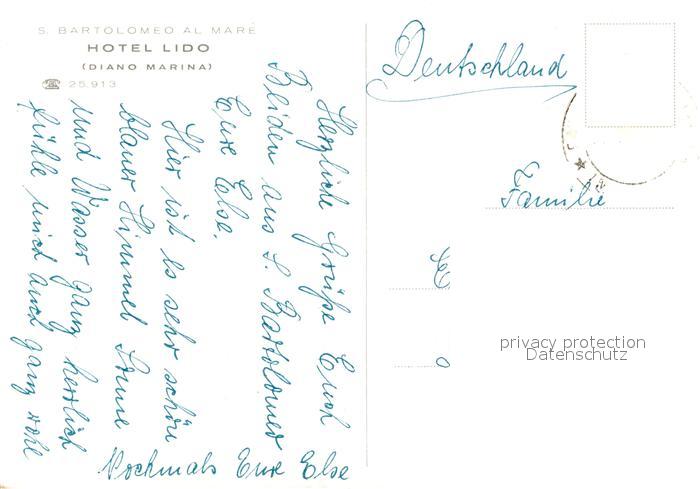 S. BARTOLOMEO AL MARE
HOTEL LIDO
(DIANO MARINA)
☎ 25.913
Herzliche Grüße Euch
Beiden aus S. Bartolomeo
Eure Else.
Hier ist es sehr schön
blauer Himmel Sonne
und Wasser ganz herrlich
fühle mich auch ganz wohl
Nochmals Eure Else
Deutschland
Familie
privacy protection
Datenschutz